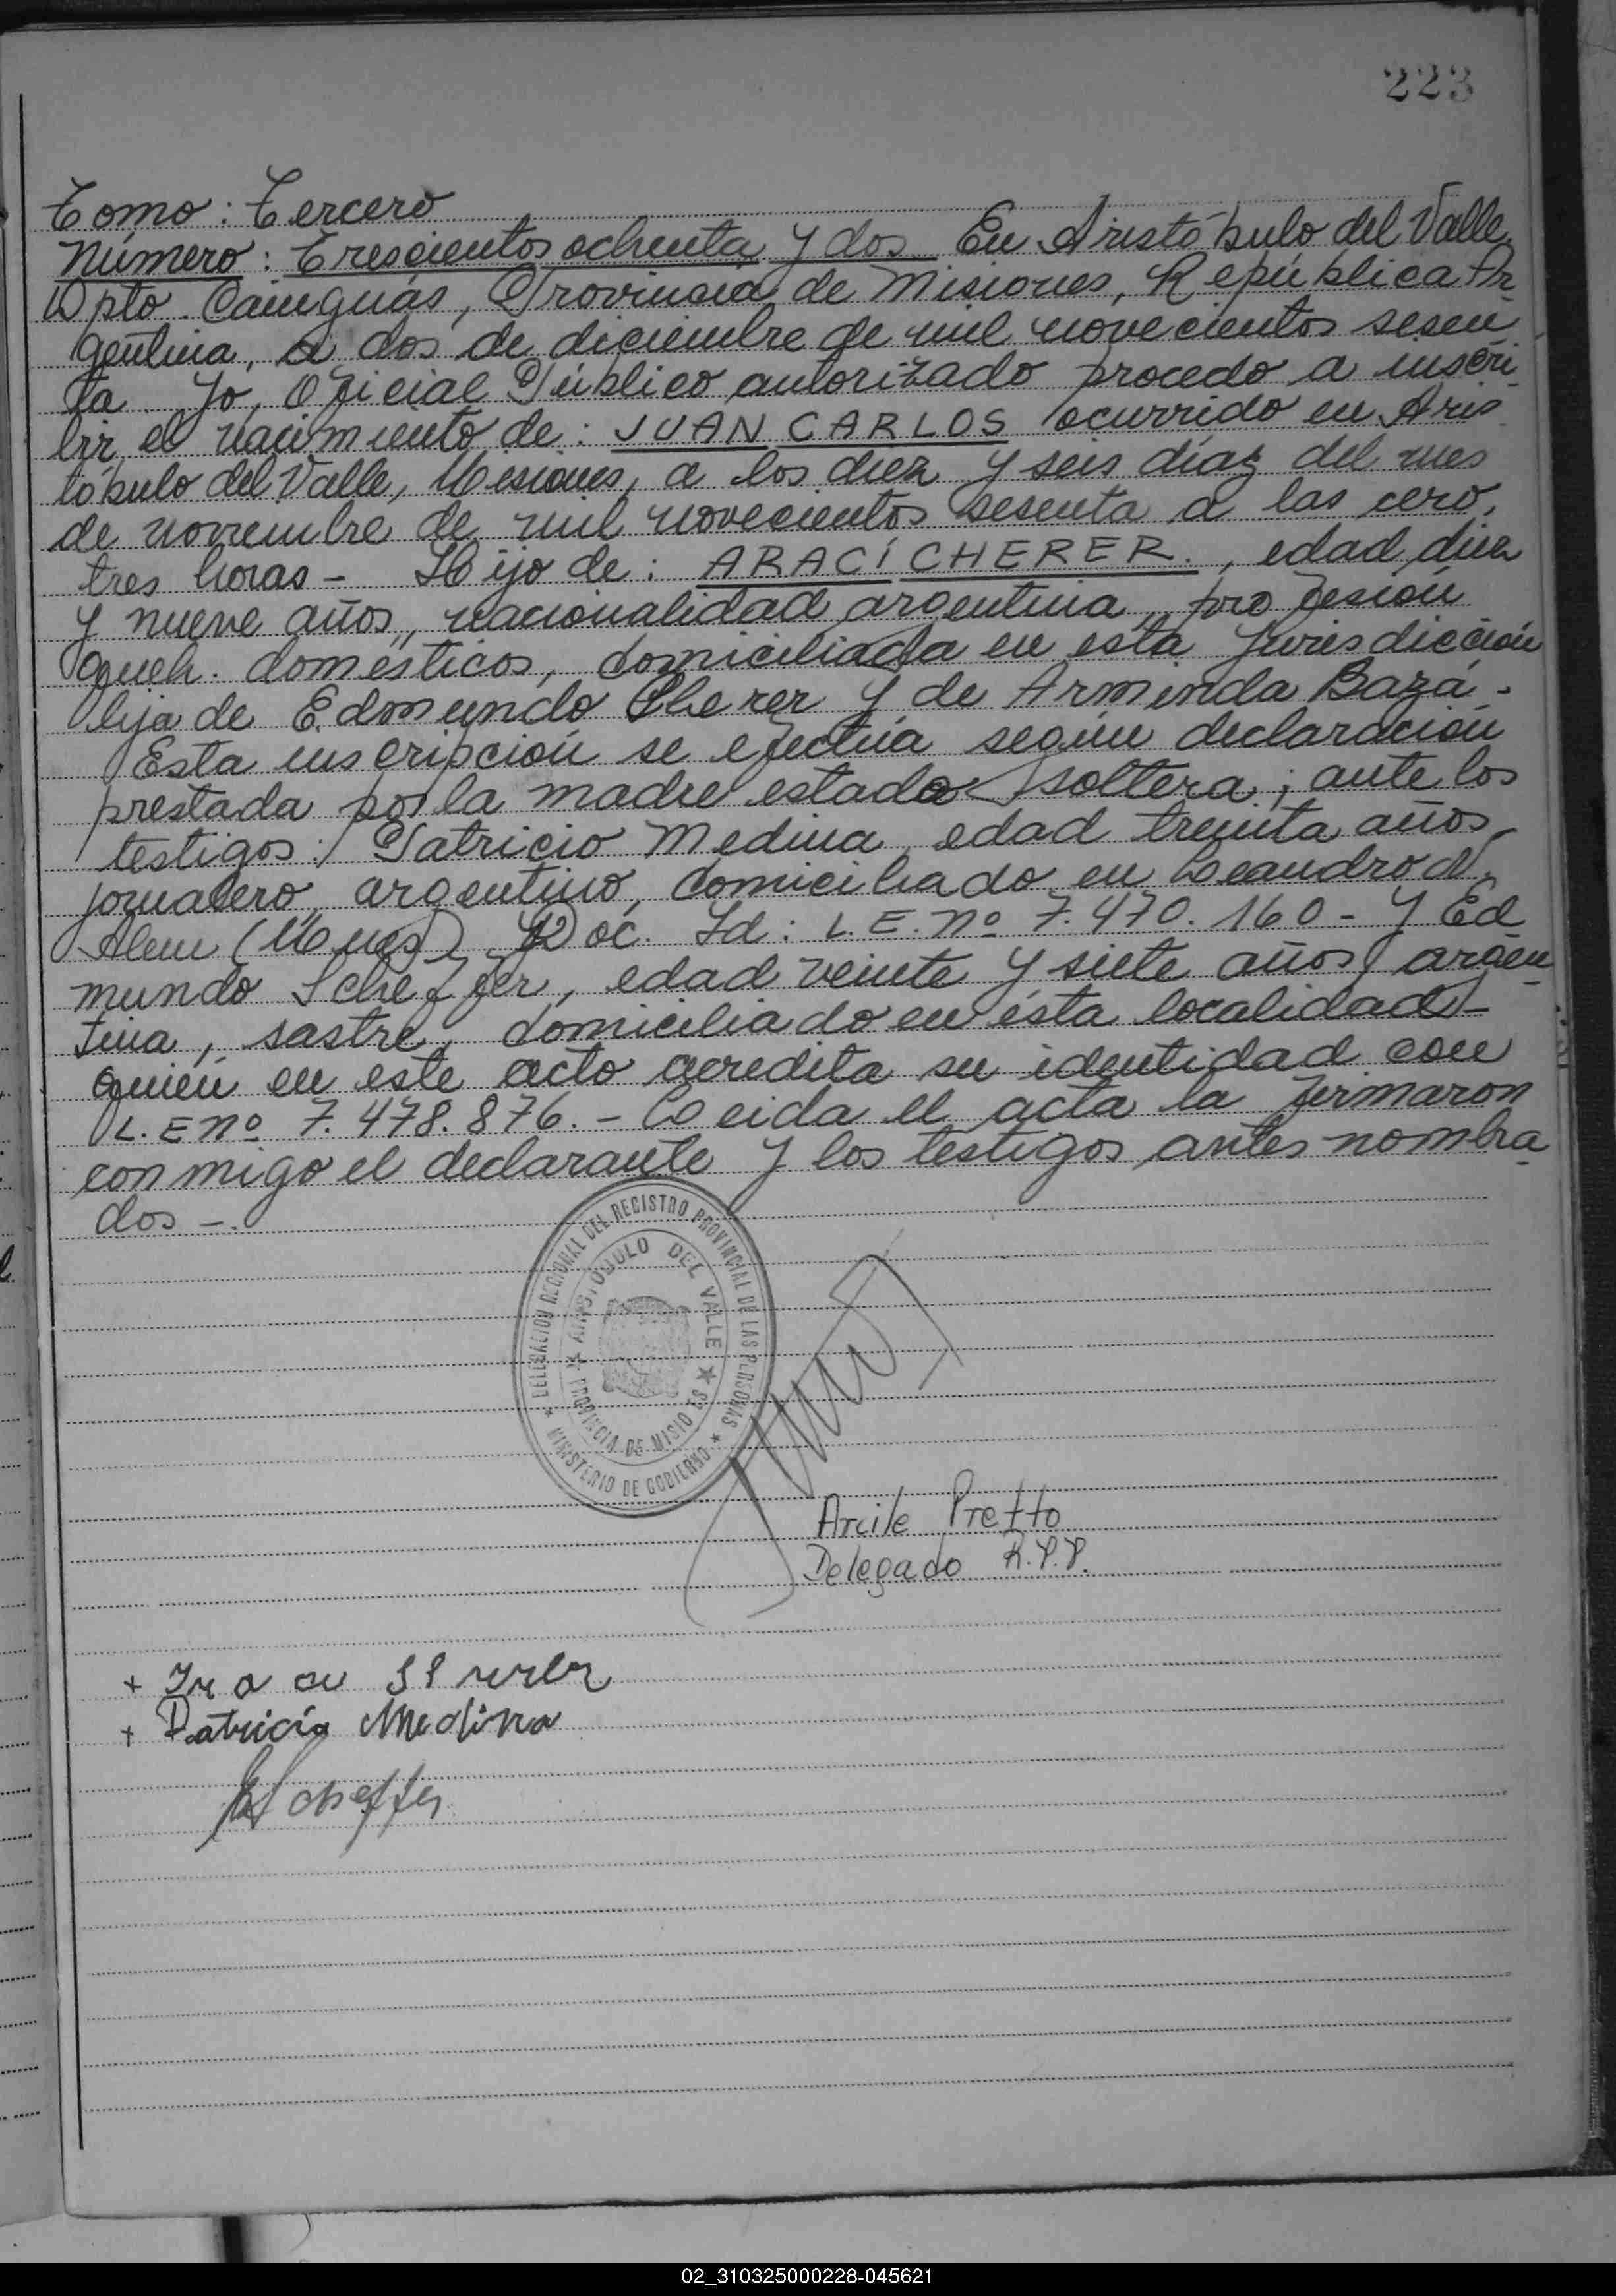 223
Tomo: Tercero
Número: Trescientos ochenta y dos En Aristóbulo del Valle,
Dpto. Cainguás, Provincia de Misiones, República Ar-
gentina, a dos de diciembre de mil novecientos sesen-
ta. Yo, Oficial Público autorizado procedo a inscri-
bir el nacimiento de: JUAN CARLOS ocurrido en Aris-
tóbulo del Valle, Misiones, a los diez y seis días del mes
de noviembre de mil novecientos sesenta a las cero,
tres horas - Hijo de: ARACÍ CHERER., edad diez
y nueve años, nacionalidad argentina, profesión
queh. domésticos, domiciliada en esta Jurisdicción
hija de Edmundo Sherer y de Armenda Bazá.
Esta inscripción se efectúa según declaración
prestada por la madre estado soltera; ante los
testigos: Patricio Medina, edad treinta años,
jornalero, argentino, domiciliado en Leandro N.
Alem (Mnes) Doc. Id: L.E. nº 7.470.160 - y Ed-
mundo Scheffer, edad veinte y siete años, argen-
tina, sastre, domiciliado en ésta localidad -
quién en este acto acredita su identidad con
L.E nº 7.478.876. - Leida el acta la firmaron
conmigo el declarante y los testigos antes nombra-
dos -.
DELEGACION REGIONAL DEL REGISTRO PROVINCIAL DE LAS PERSONAS
ARISTOBULO DEL VALLE
PROVINCIA DE MISIONES
MINISTERIO DE GOBIERNO
Arcile Pretto
Delegado R.P.P.
+ Patricio Medina
Scheffer
02_310325000228-045621